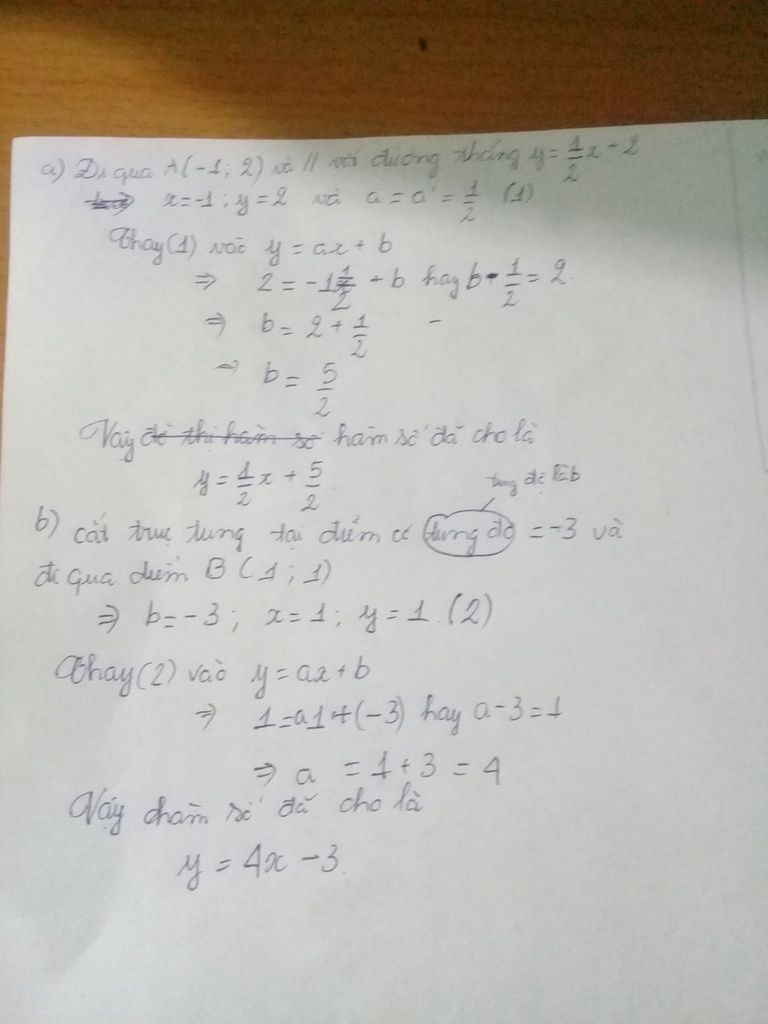 a) Đi qua A(-1; 2) và // với đường thẳng y = 1/2 x - 2
x = -1 ; y = 2 và a = a' = 1/2 (1)
Thay (1) vào y = ax + b
⇒ 2 = -1 1/2 + b hay b - 1/2 = 2.
⇒ b = 2 + 1/2
⇒ b = 5/2
Vậy đồ thị hàm số hàm số đã cho là
y = 1/2 x + 5/2
tung độ là b
b) cắt trục tung tại điểm có tung độ = -3 và
đi qua điểm B (1 ; 1)
⇒ b = -3 ; x = 1 ; y = 1. (2)
Thay (2) vào y = ax + b
⇒ 1 = a1 + (-3) hay a - 3 = 1
⇒ a = 1 + 3 = 4
Vậy hàm số đã cho là
y = 4x - 3.